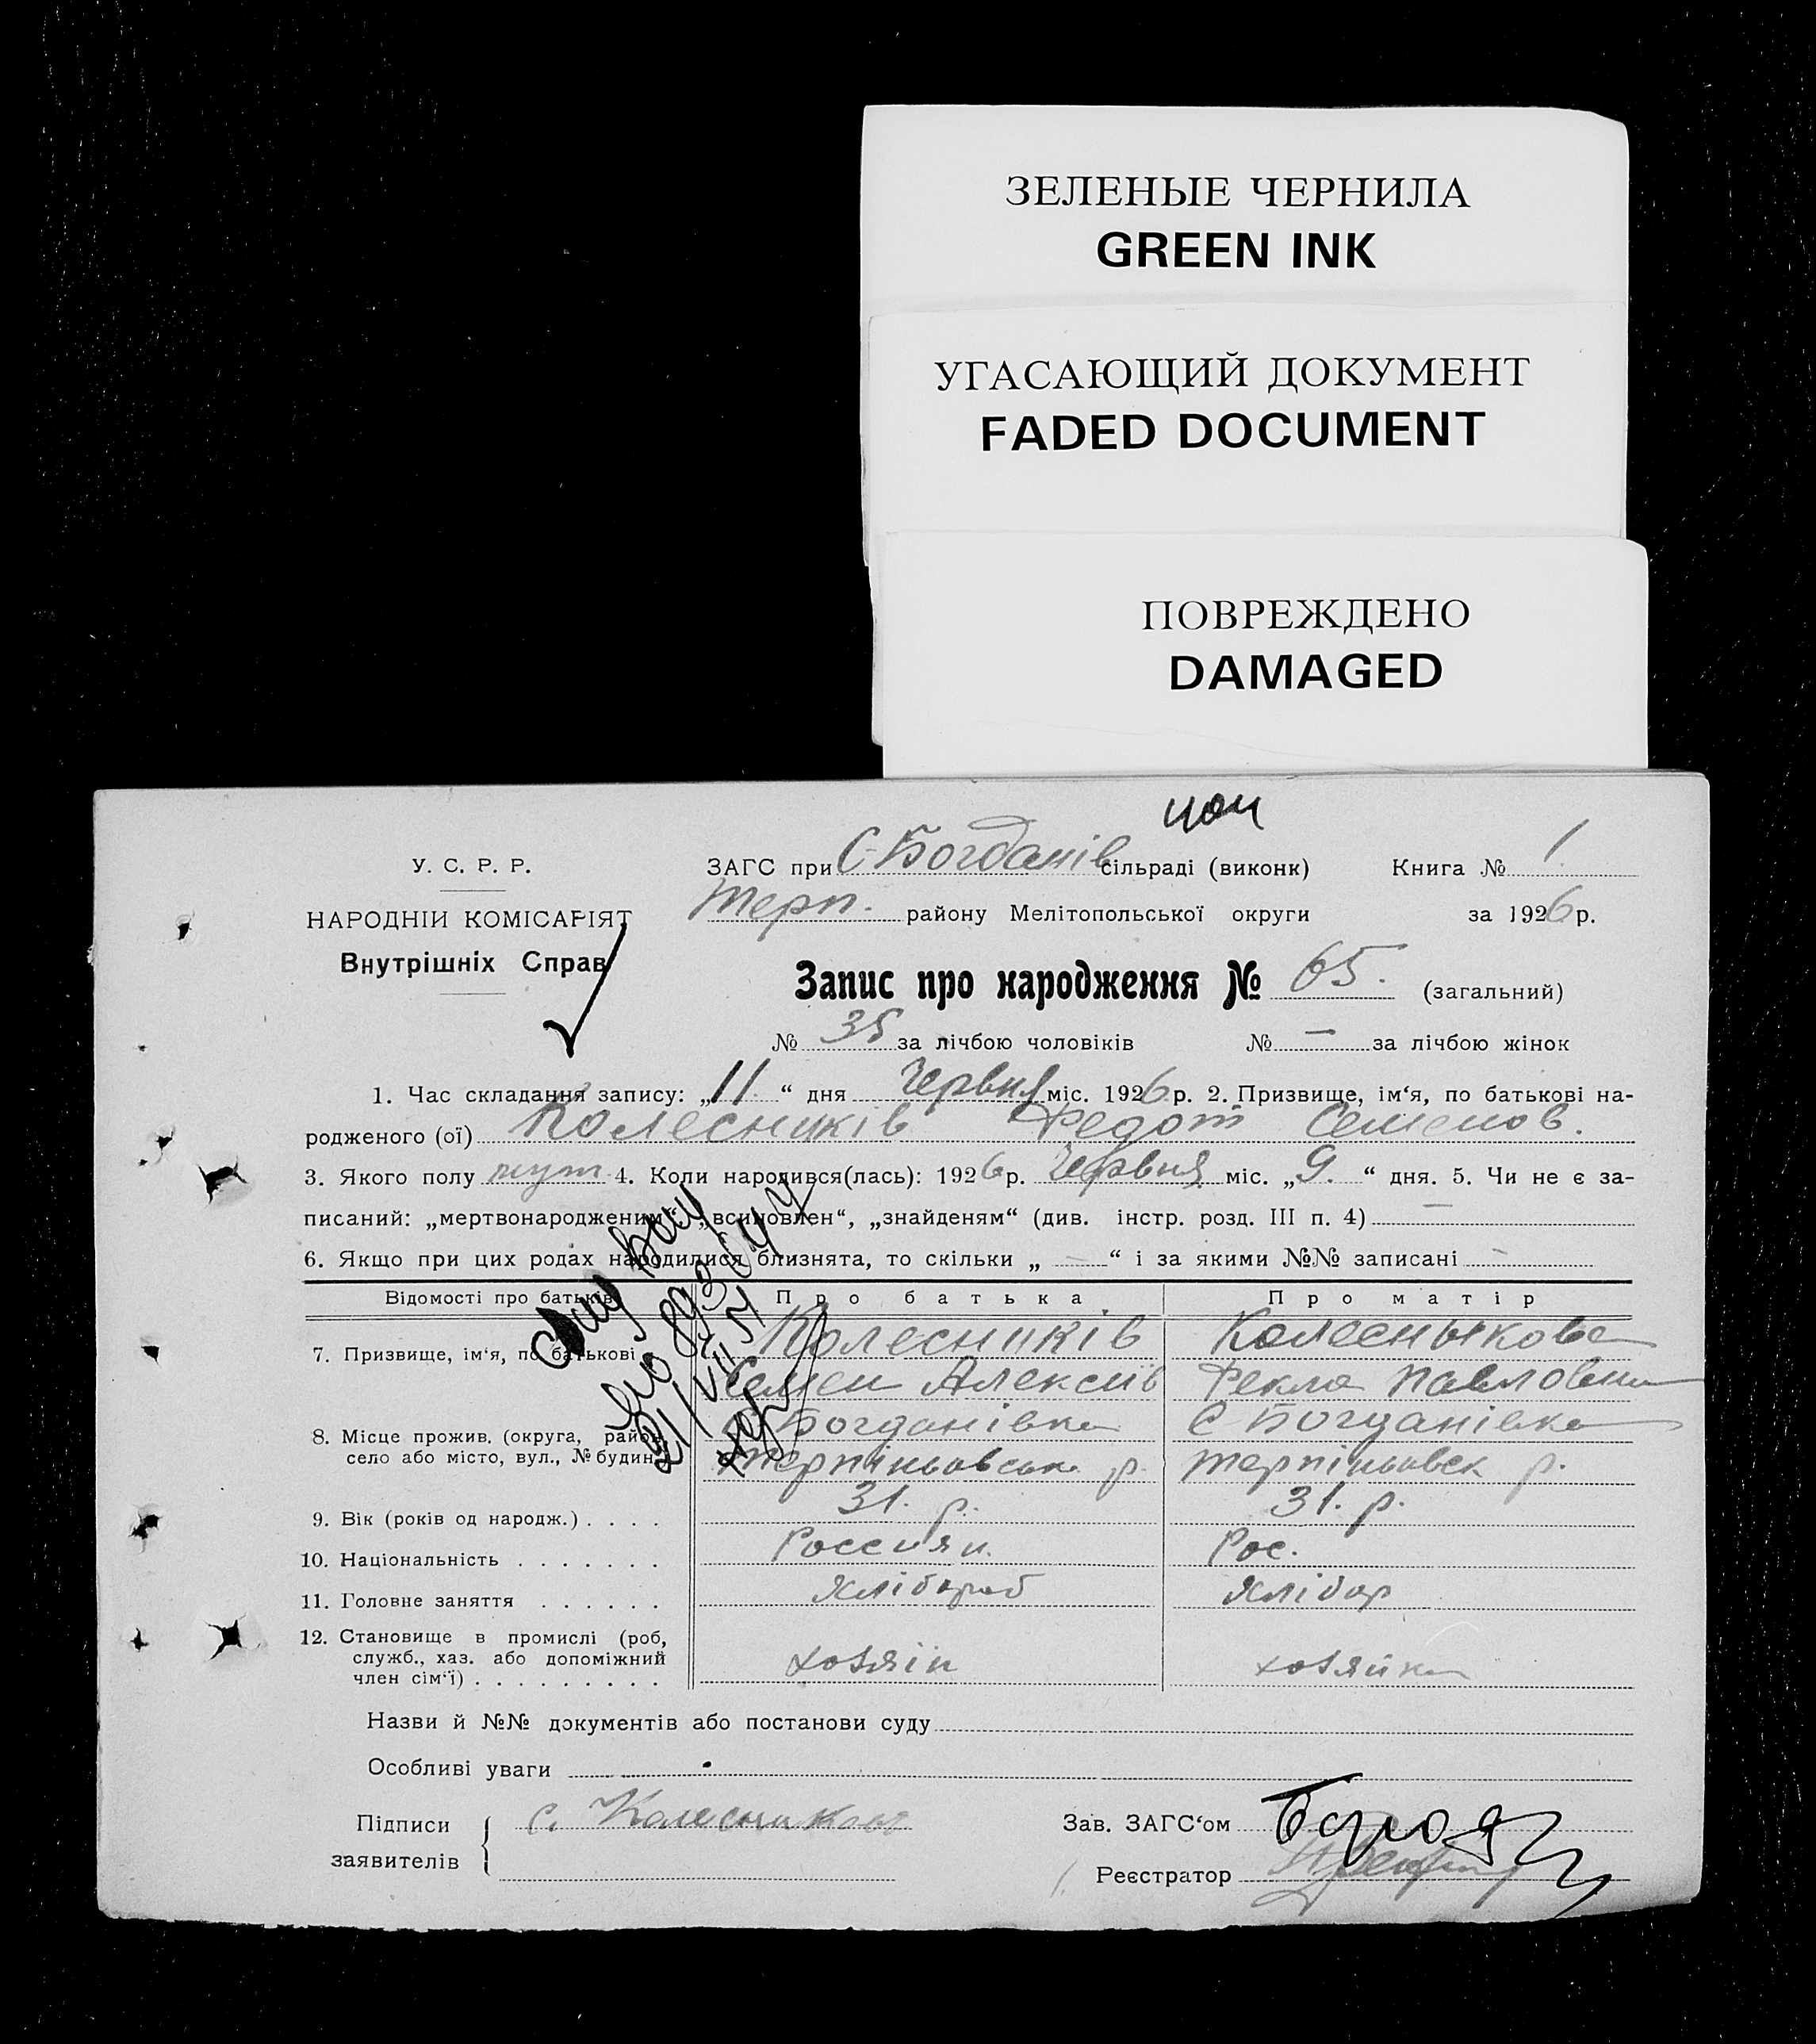 ЗЕЛЕНЫЕ ЧЕРНИЛА
GREEN INK
УГАСАЮЩИЙ ДОКУМЕНТ
FADED DOCUMENT
ПОВРЕЖДЕНО
DAMAGED
У. С. Р. Р.
НАРОДНІЙ КОМІСАРІЯТ
Внутрішніх Справ
ЗАГС при С-Богданів сільраді (виконк) Книга № 1
Терп. району Мелітопольської округи за 1926 р.
Запис про народження № 65. (загальний)
№ 35 за лічбою чоловіків № — за лічбою жінок
1. Час складання запису: „11“ дня Червня міс. 1926 р. 2. Призвище, ім‘я, по батькові на-
родженого (ої) Колесників Федот Семенов.
3. Якого полу муж 4. Коли народився(лась): 1926 р. Червня міс. „9.“ дня. 5. Чи не є за-
писаний: „мертвонародженим“ „всиновлен“, „знайденям“ (див. інстр. розд. III п. 4) —
6. Якщо при цих родах народилися близнята, то скільки „ — “ і за якими №№ записані —
Відомості про батьків Про батька Про матір
7. Призвище, ім‘я, по батькові Колесників Колесныкова
Семен Алексіїв Фекла Павловна
8. Місце прожив. (округа, район, С Богданівка С Богданівка
село або місто, вул., № будин.) Терпіньовська р. Терпіньовск р.
9. Вік (років од народж.) . . . . 31. р. 31. р.
10. Національність . . . . . . . Россиян. Рос.
11. Головне заняття . . . . . . Хлібороб Хлібор
12. Становище в промислі (роб,
служб., хаз. або допоміжний хозяїн хозяйка
член сім‘ї) . . . . . . . . .
Назви й №№ документів або постанови суду
Особливі уваги
Підписи С. Колесников Зав. ЗАГС‘ом
заявителів Реєстратор